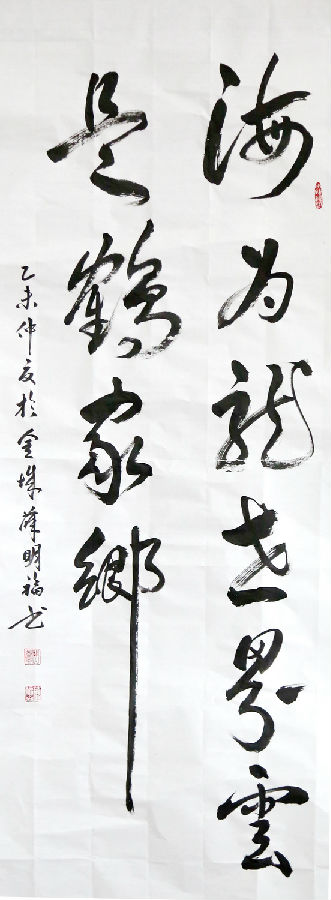 海为龙世界雲
是鶴家鄉
乙未仲夏於金城薛明福书